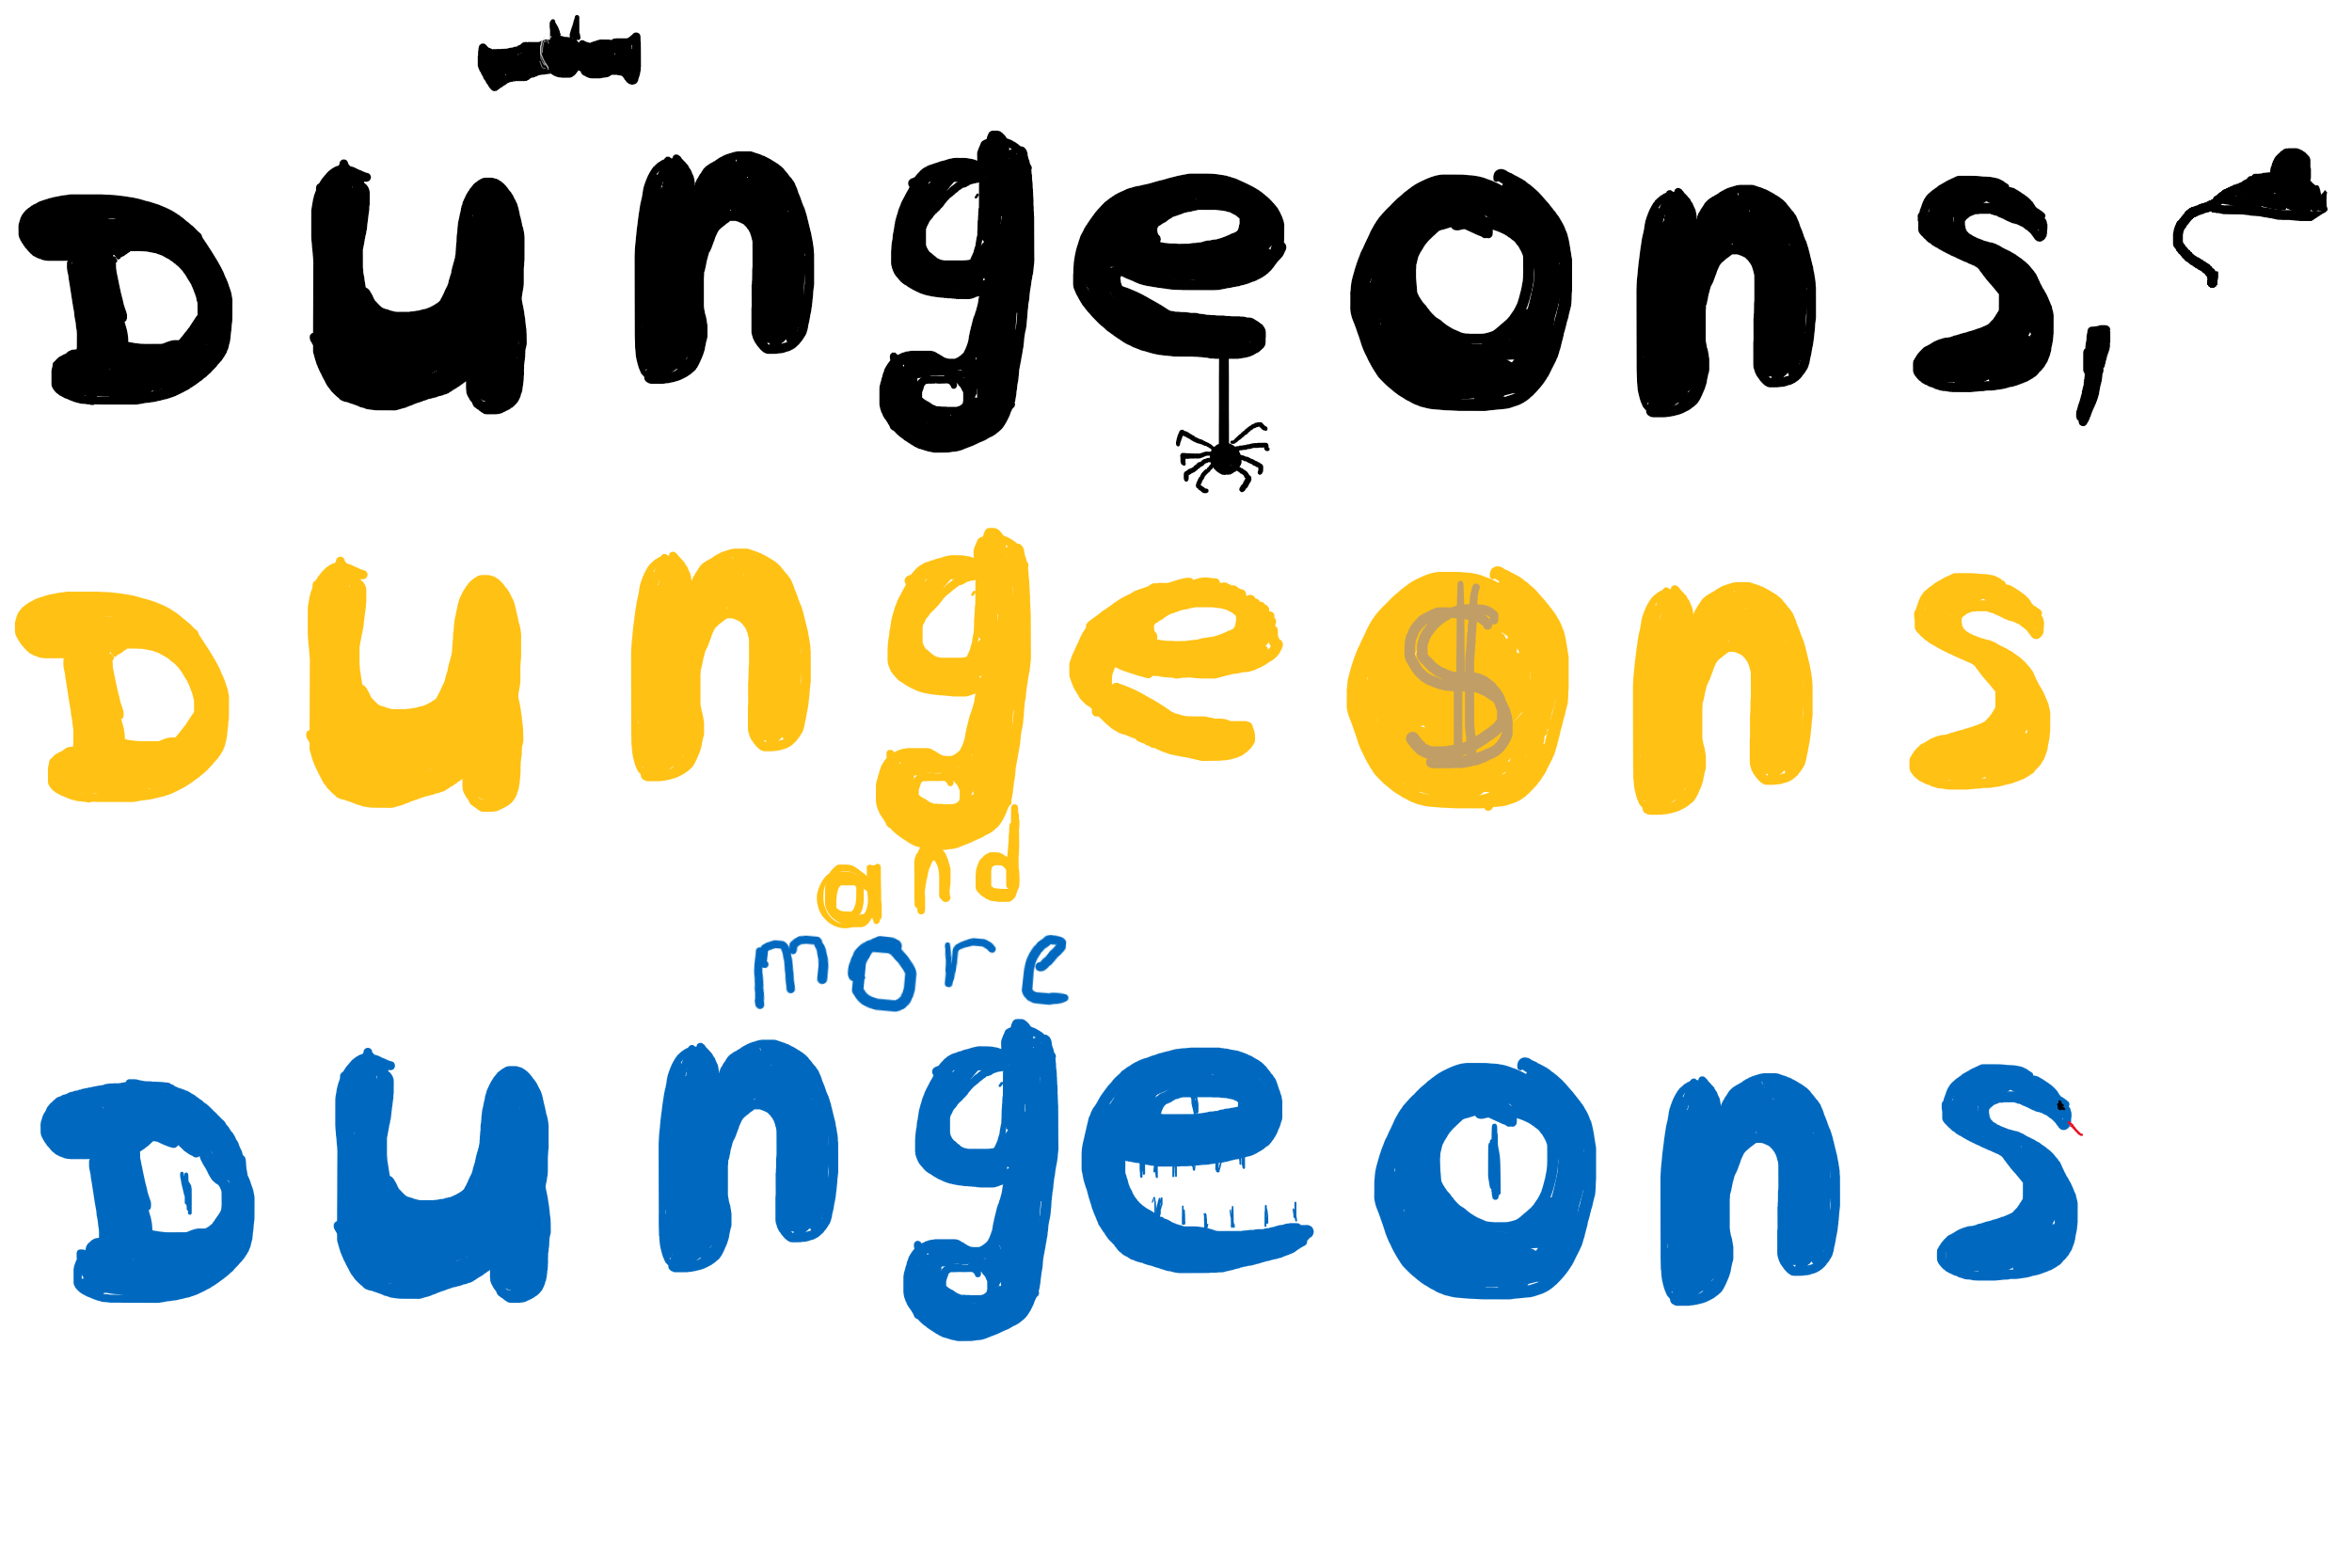 Dungeons,
Dunge$ns
and
more
Dungeons